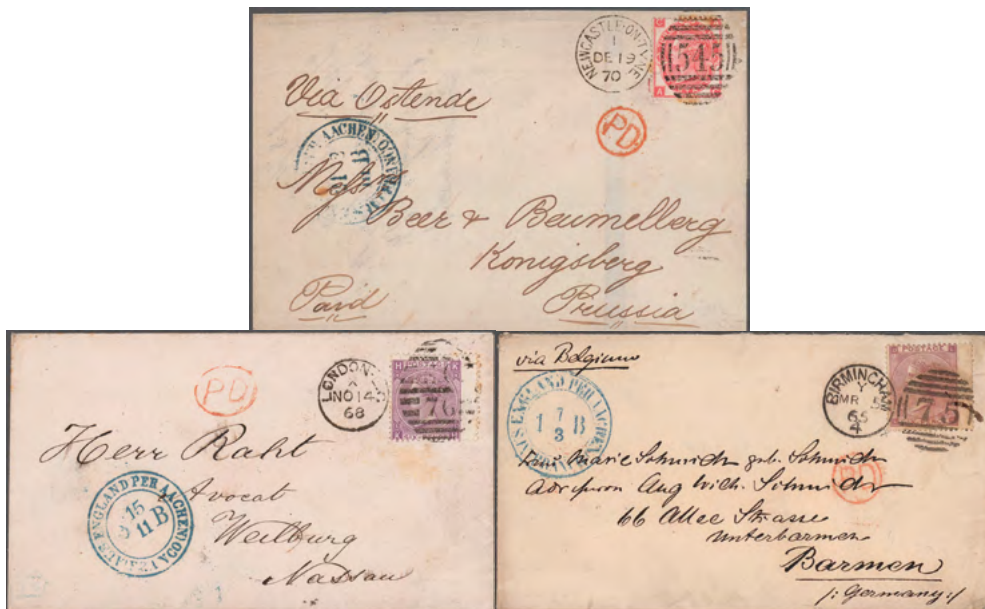 NEWCASTLE-ON-TYNE
1
DE 19
70
545
C
A
PD
Via Ostende
AACHEN
Messrs
Beer & Beumelberg
Konigsberg
Prussia
Paid
PD
LONDON
NO 14
68
H K
76
Herr Raht
Avocat
Weilburg
Nassau
AUS ENGLAND PER AACHEN FRANCO
15
11 B
via Belgium
BIRMINGHAM
Y
MR 5
POSTAGE
75
AUS ENGLAND PER AACHEN
7
1 B
3
PD
Marie Schmidt geb. Schmidt
Aug Wilh. Schmidt
66 Allee Strasse
Unterbarmen
Barmen
/: Germany:/